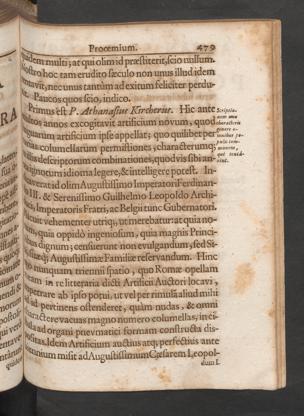 Proœmium. 479
quidem multi; at qui olim id præstiterit, scio nullum.
nostro hoc tam erudito sæculo non unus illud idem
tentavit; nec unus tantùm ad exitum feliciter perdu-
Paucos quos scio, indico.
Primus est P. Athanasius Kircherus. Hic ante
multos annos excogitavit artificium novum, quod
Linguarum artificium ipse appellat; quo quilibet per
varias columellarum permistiones, characterumq;
illis descriptorum combinationes, quodvis sibi an-
ignotum idioma legere, & intelligere potest. In-
erat id olim Augustissimo Imperatori Ferdinan-
III. & Serenissimo Guilhelmo Leopoldo Archi-
Imperatoris Fratri, ac Belgii tunc Gubernatori.
Placuit vehementer utriq;, ut merebatur: at quia no-
quia oppidò ingeniosum, quia magnis Princi-
pibus dignum; censuerunt non evulgandum, sed Si-
Augustissimæ Familiæ reservandum. Hinc
nunquam triennii spatio, quo Romæ opellam
in re litteraria dicti Artificii Auctori locavi,
impetrare ab ipso potui, ut vel per rimulã aliud mihi
ad pertinens ostenderet, quàm nudas, & omni
charactere vacuas magno numero columellas, in ci-
ad organi pnevmatici formam constructa dis-
positas. Idem Artificium auctius atq; perfectius ante
triennium misit ad Augustissimum Cæsarem Leopol-
dum I.
Scriptio-
nem uno
characteris
genere o-
mnibus po-
pulis com-
munem,
qui tentâ-
rint.